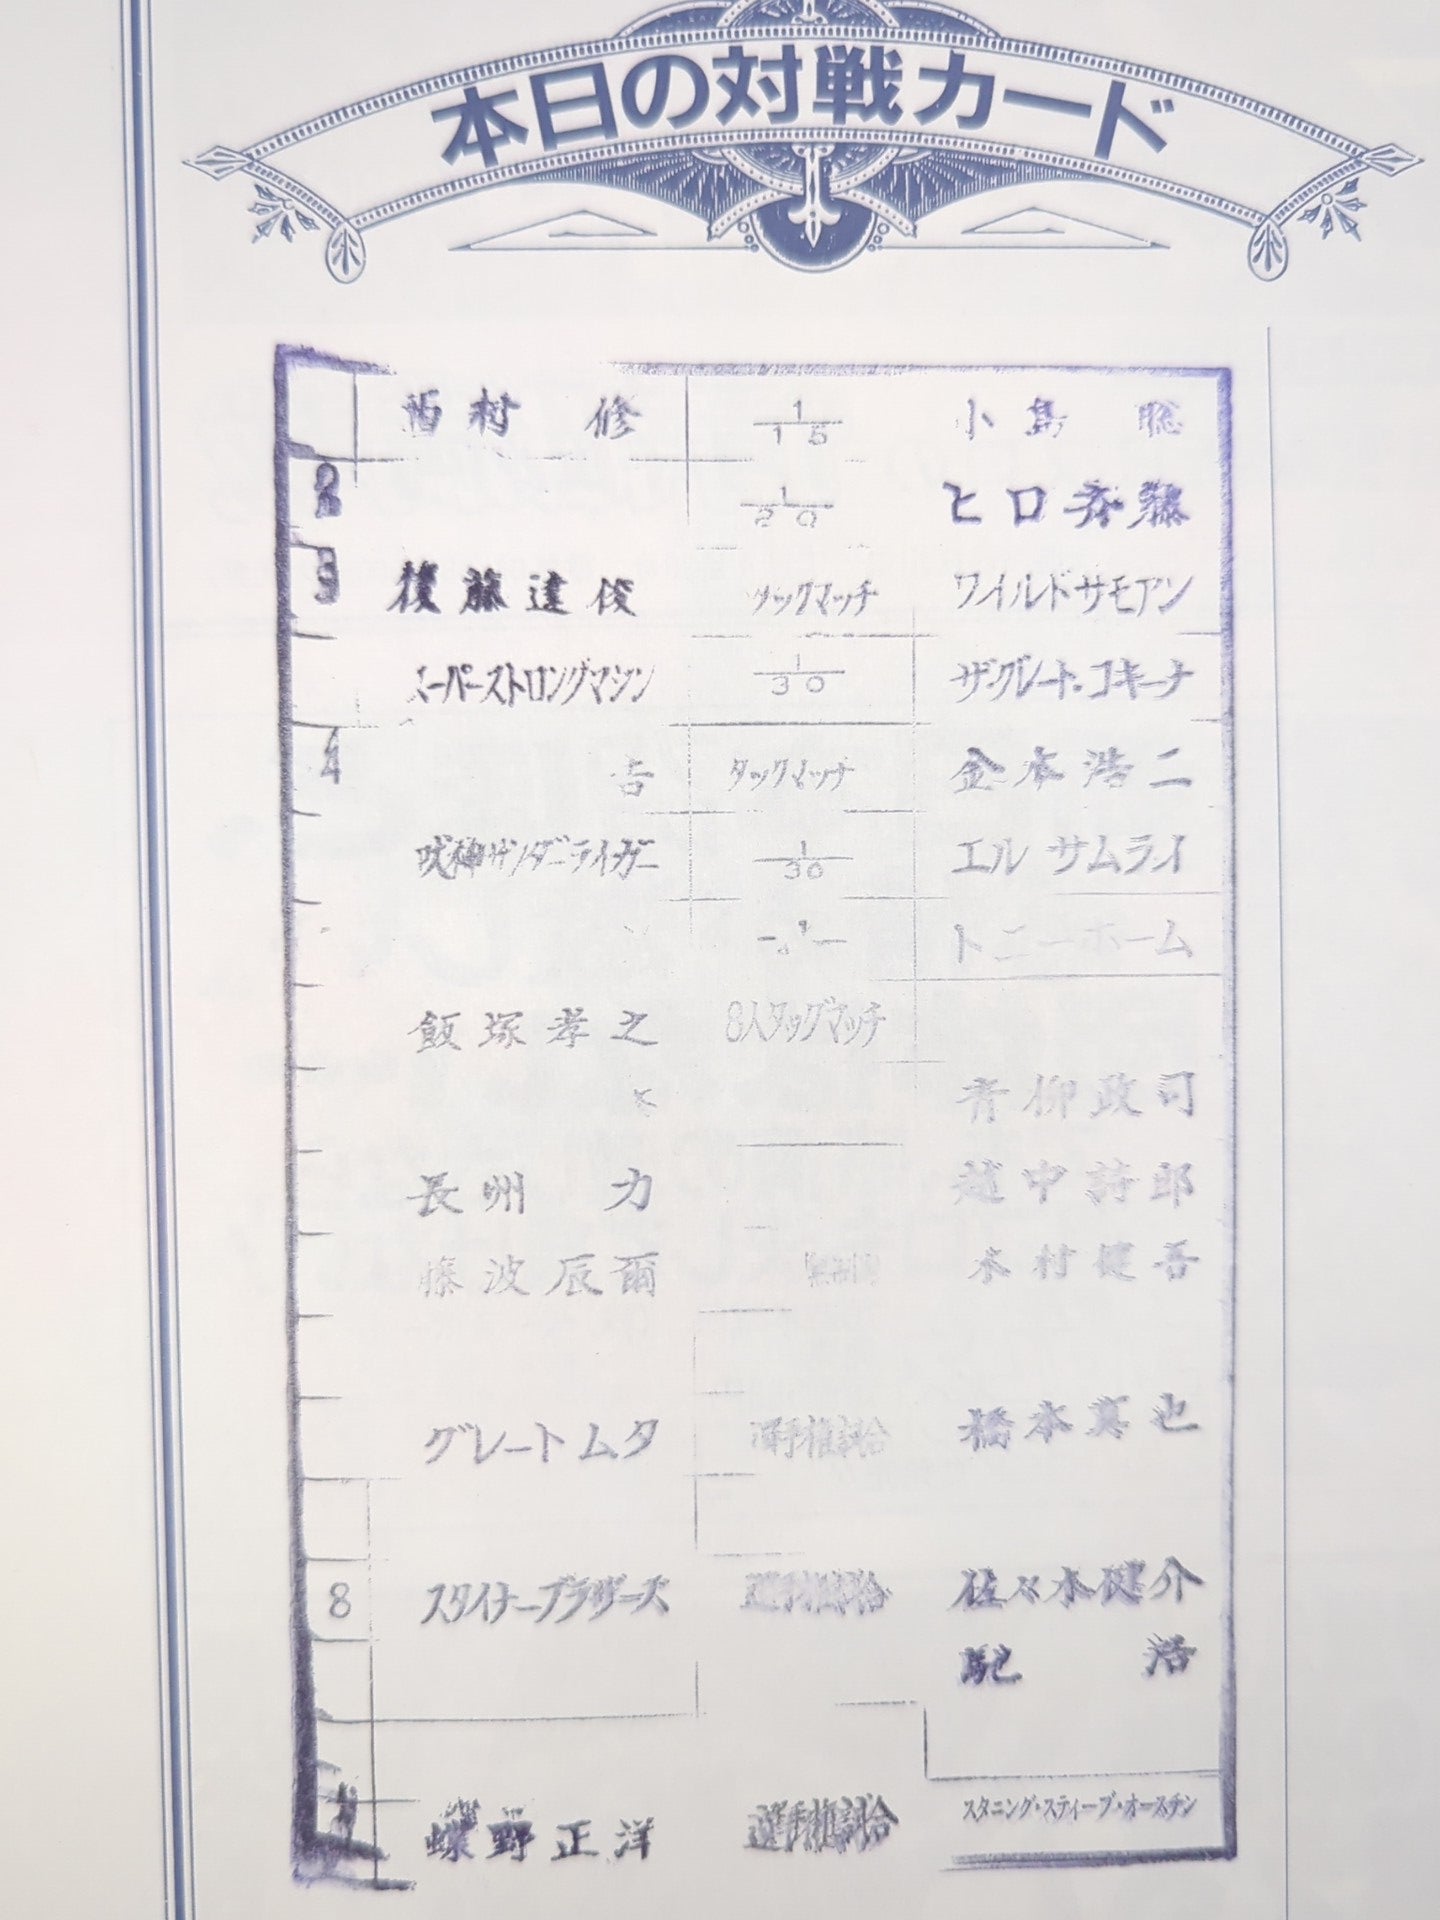 本日の対戦カード
西村 修 1/15 小島 聡
2 1/20 ヒロ斉藤
3 後藤達俊 タッグマッチ ワイルドサモアン
スーパーストロングマシン 1/30 ザ・グレート・コキーナ
4 タッグマッチ 金本浩二
獣神サンダーライガー 1/30 エル サムライ
トニーホーム
飯塚孝之 8人タッグマッチ
青柳政司
長州 力 越中詩郎
藤波辰爾 木村健吾
グレートムタ 選手権試合 橋本真也
8 スタイナーブラザーズ 選手権試合 佐々木健介
馳 浩
蝶野正洋 選手権試合 スタニング・スティーブ・オースチン